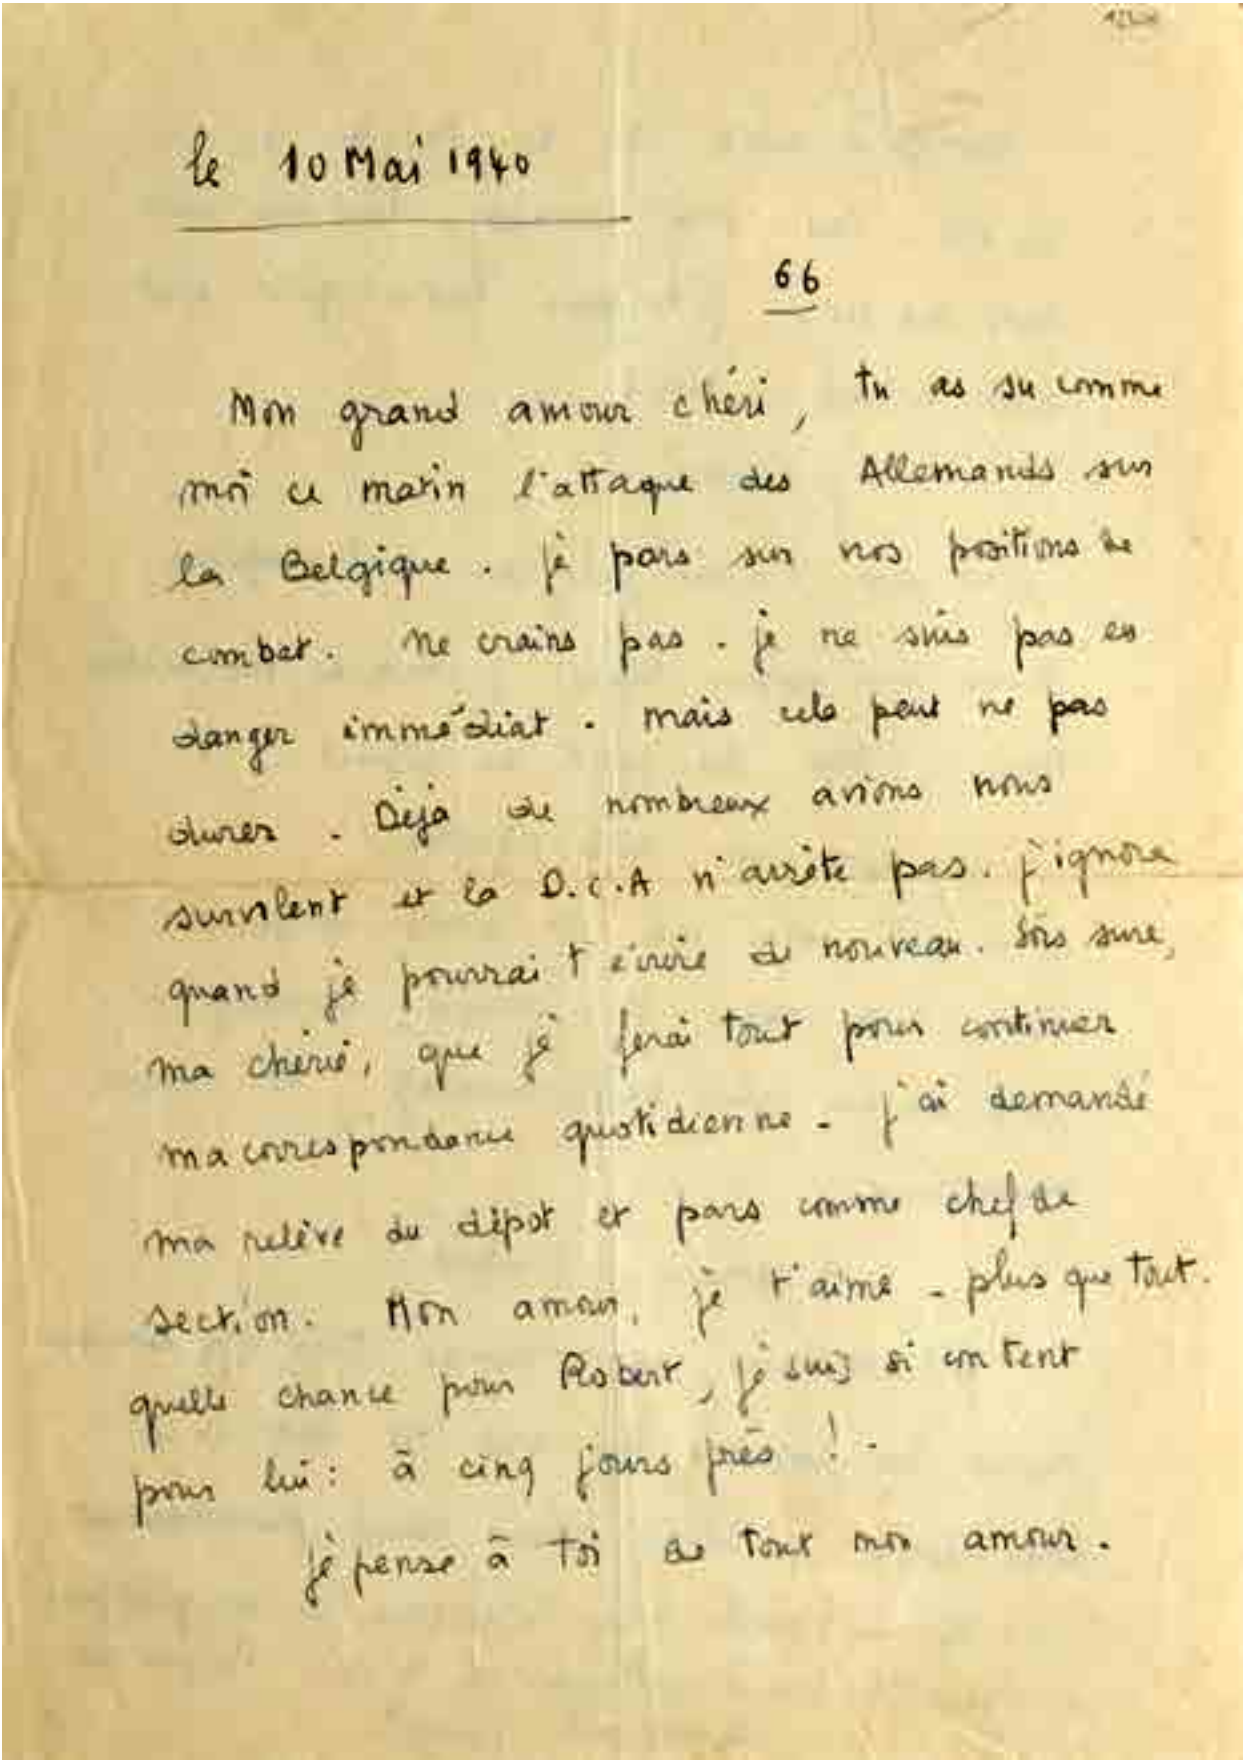 le 10 Mai 1940
66
Mon grand amour chéri, tu as su comme
moi ce matin l'attaque des Allemands sur
la Belgique. je pars sur nos positions de
combat. Ne crains pas. je ne suis pas en
danger immédiat. Mais cela peut ne pas
durer. Déjà de nombreux avions nous
survolent et la D.C.A n'arrête pas. j'ignore
quand je pourrai t'écrire de nouveau. Sois sure,
ma chérie, que je ferai tout pour continuer
ma correspondance quotidienne. j'ai demandé
ma relève du dépot et pars comme chef de
section. Mon amour, je t'aime - plus que tout.
quelle chance pour Robert, je suis si content
pour lui : à cinq jours près ! -
je pense à toi de tout mon amour.